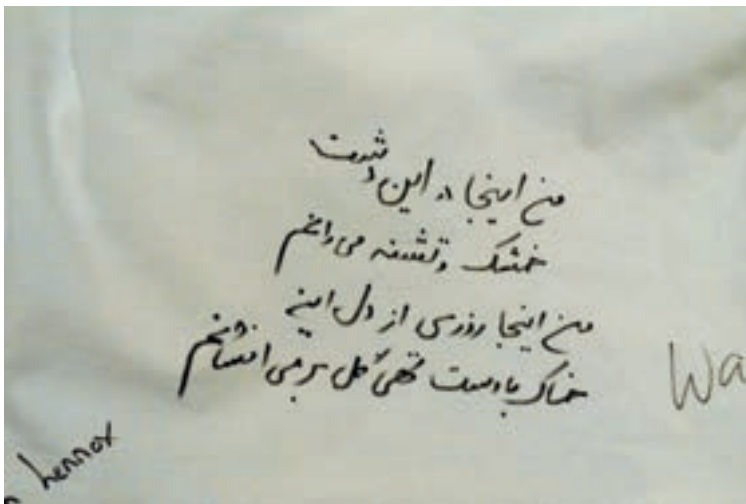 من اینجا در این دشت
خشک و تشنه می رانم
من اینجا روزی از دل این
خاک با دست تهی گل بر می افشانم
Wa
n Lennox